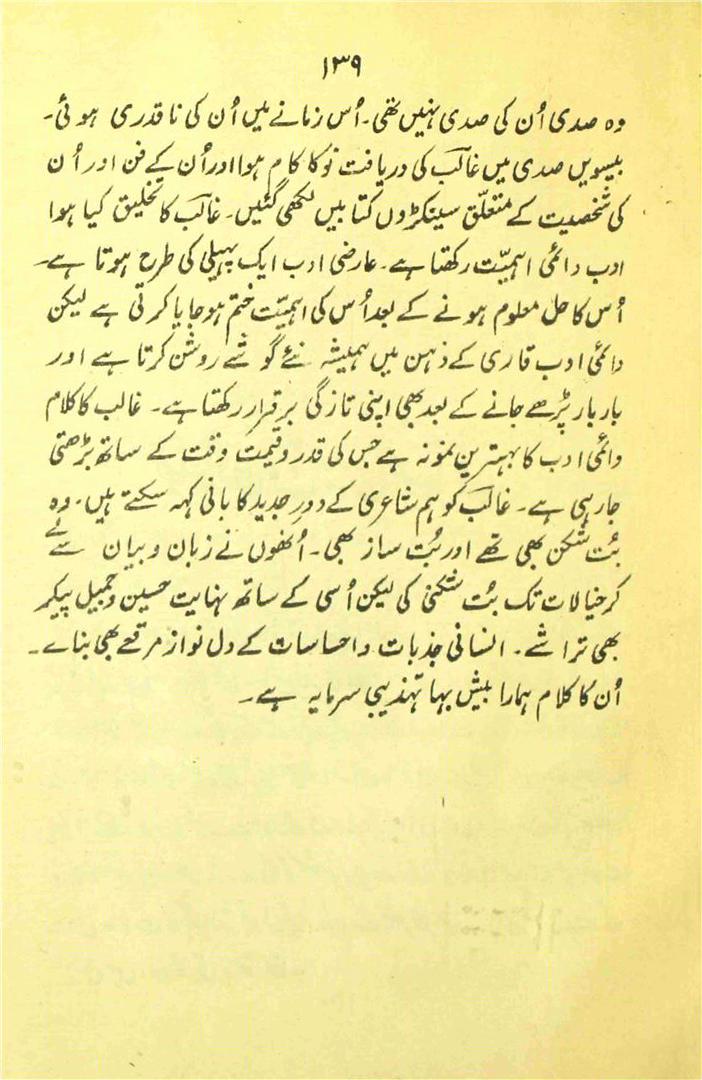 ۱۳۹
وہ صدی اُن کی صدی نہیں تھی۔ اُس زمانے میں اُن کی ناقدری ہوئی۔
بیسویں صدی میں غالبؔ کی دریافت نو کا کام ہوا اور اُن کے فن اور اُن
کی شخصیت کے متعلّق سینکڑوں کتابیں لکھی گئیں۔ غالبؔ کا تخلیق کیا ہوا
ادب دائمی اہمیّت رکھتا ہے۔ عارضی ادب ایک پہیلی کی طرح ہوتا ہے۔
اُس کا حل معلوم ہونے کے بعد اُس کی اہمیّت ختم ہوجایا کرتی ہے لیکن
دائمی ادب قاری کے ذہن میں ہمیشہ نئے گوشے روشن کرتا ہے اور
بار بار پڑھے جانے کے بعد بھی اپنی تازگی برقرار رکھتا ہے۔ غالب کا کلام
دائمی ادب کا بہترین نمونہ ہے جس کی قدر و قیمت وقت کے ساتھ بڑھتی
جارہی ہے۔ غالبؔ کو ہم شاعری کے دورِ جدید کا بانی کہہ سکتے ہیں۔ وہ
بُت شکن بھی تھے اور بُت ساز بھی۔ اُنھوں نے زبان و بیان سے لے
کر خیالات تک بُت شکنی کی لیکن اُسی کے ساتھ نہایت حسین و جمیل پیکر
بھی تراشے۔ انسانی جذبات و احساسات کے دل نواز مرقعے بھی بنائے۔
اُن کا کلام ہمارا بیش بہا تہذیبی سرمایہ ہے۔